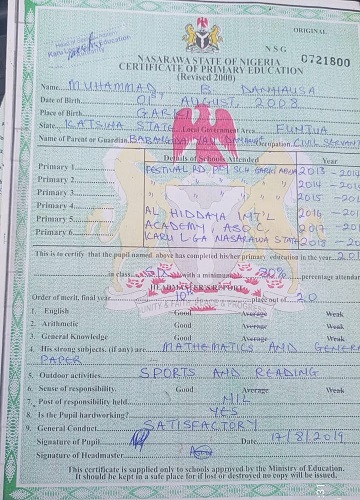 ORIGINAL
N S G
0721800
Karu L.G. Education
NASARAWA STATE OF NIGERIA
CERTIFICATE OF PRIMARY EDUCATION
(Revised 2000)
Name MUHAMMAD B. DANHAUSA
Date of Birth 01ST AUGUST, 2008
Place of Birth GAR
State KATSINA STATE Local Government Area FUNTUA
Name of Parent or Guardian BABANGIDA Occupation CIVIL SERVANT
Details of Schools Attended Year
Primary 1 FESTIVAL RD. SCH GARKI ABUJA 2013 - 2014
Primary 2 " " " 2014 - 201
Primary 3 " " " 2015 - 201
Primary 4 AL HIDDAYA INT'L 2016 - 201
Primary 5 ACADEMY, ASO C. 2017 - 201
Primary 6 KARU LGA NASARAWA STATE 2018 - 20
This is to certify that the pupil named above has completed his/her primary education in the year 201
in class with a minimum percentage attendance
HEADMASTER'S REPORT
Order of merit, final year 10th place out of 20
1. English Good Average Weak
2. Arithmetic Good Average Weak
3. General Knowledge Good Average Weak
4. His strong subjects, (if any) are MATHEMATICS AND GENERAL
PAPER
5. Outdoor activities SPORTS AND READING
6. Sense of responsibility. Good Average Weak
7. Post of responsibility held NIL
8. Is the Pupil hardworking? YES
9. General Conduct SATISFACTORY
Signature of Pupil Date 17/8/2019
Signature of Headmaster
This certificate is supplied only to schools approved by the Ministry of Education.
It should be kept in a safe place for if lost or destroyed no copy will be issued.